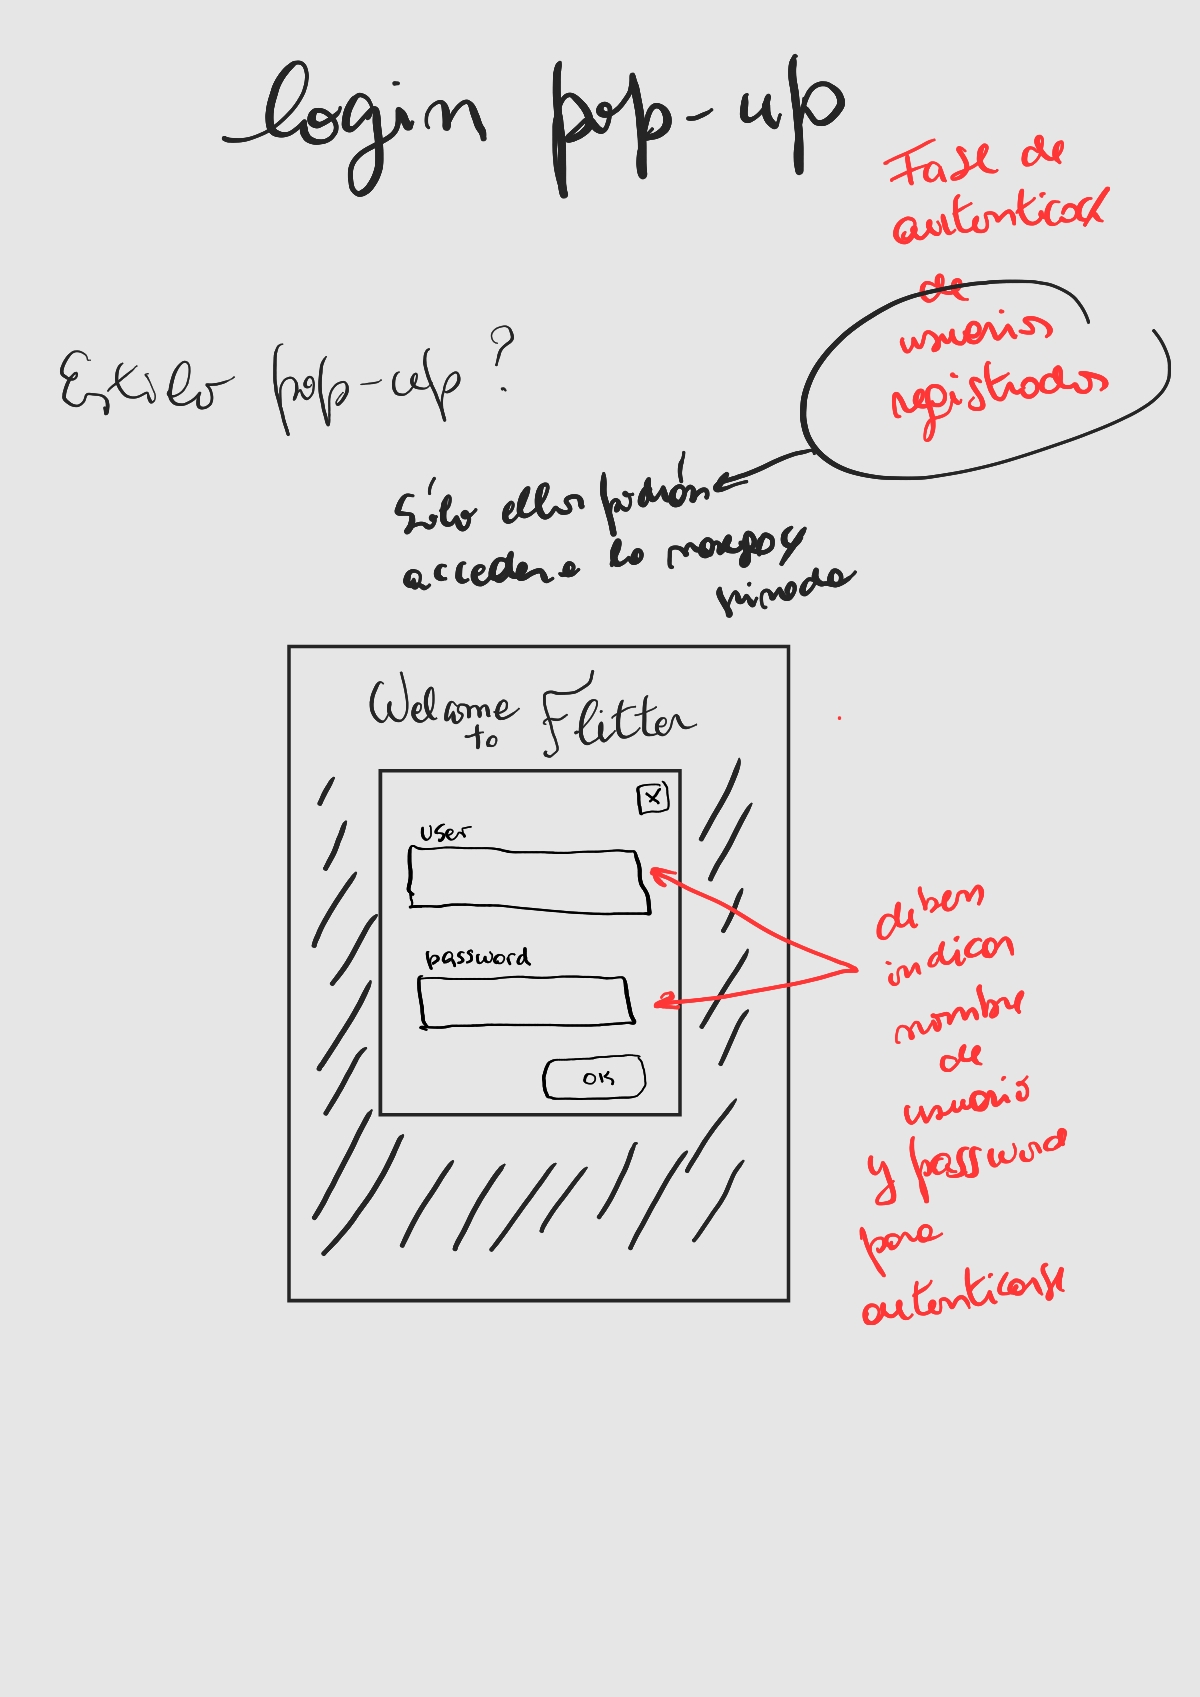 login pop-up
Fase de
autenticac
de
usuarios
registrados
Estilo pop-up?
Sólo ellos podrán
acceder a la
privada
Welcome
to Flitter
X
user
password
OK
deben
indicar
nombre
de
usuario
y password
para
autenticarse